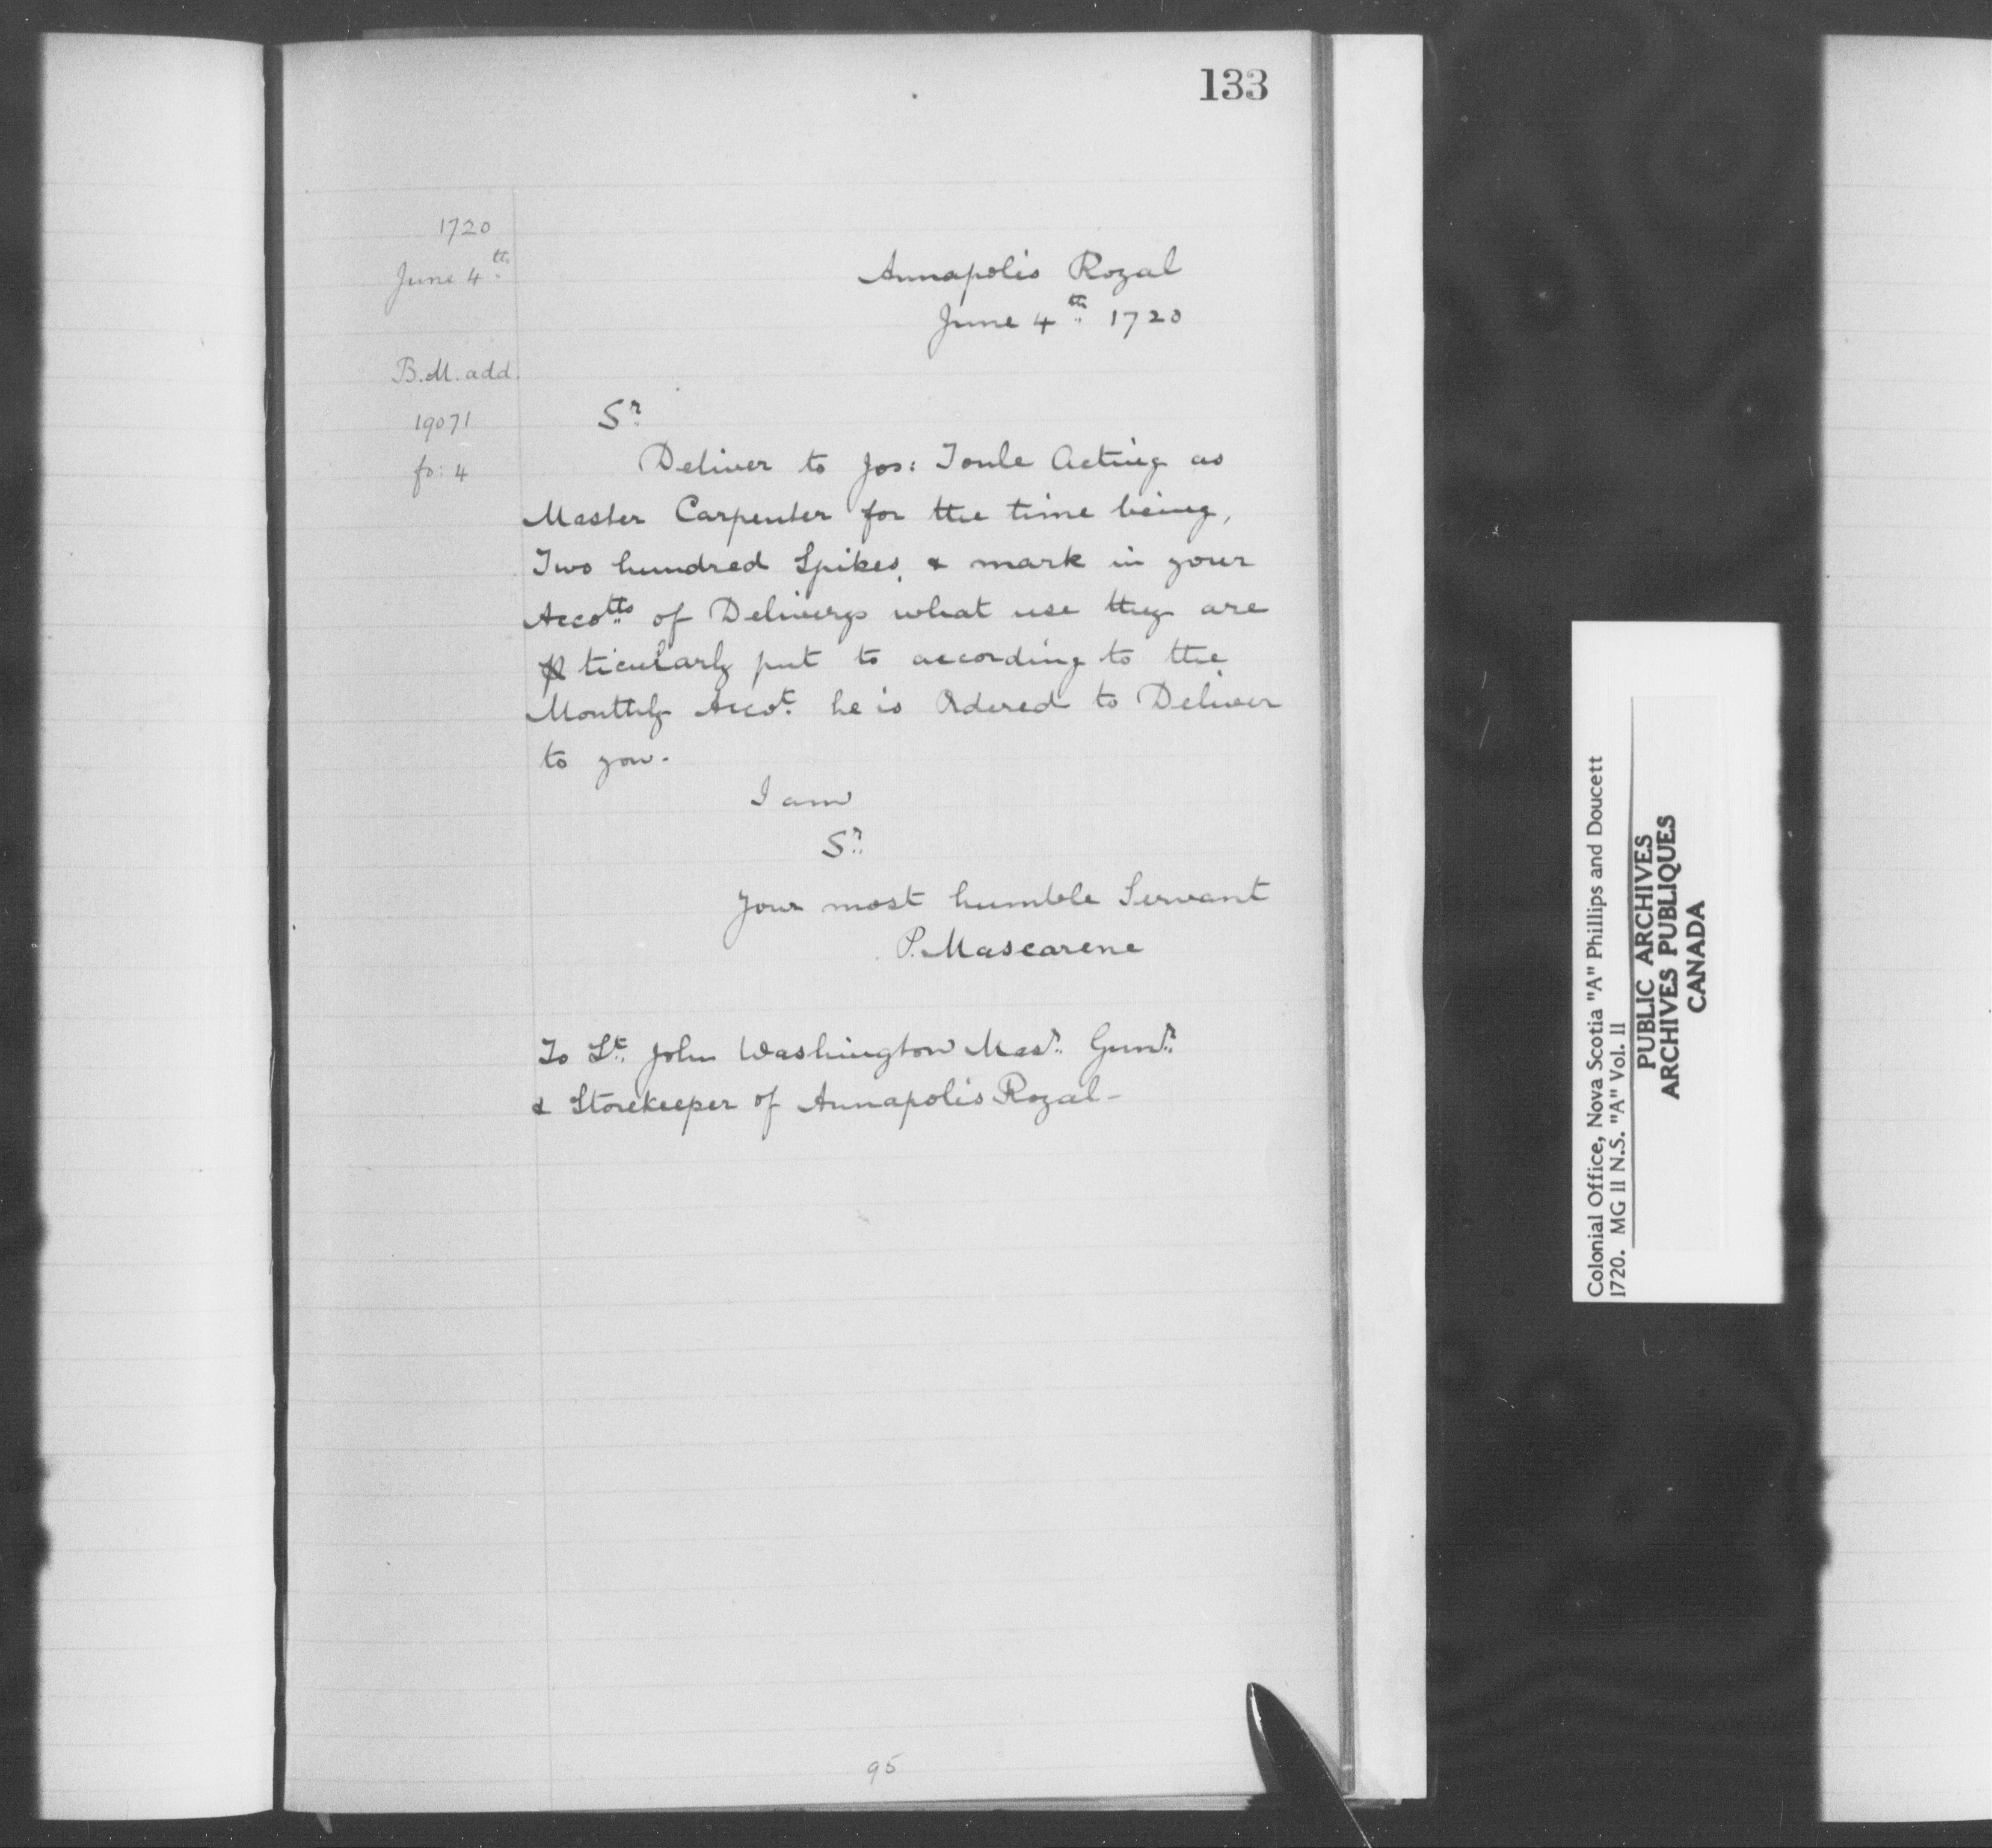 133
1720
June 4th
B.M. add.
19071
fo: 4
Annapolis Royal
June 4th 1720
Sr
Deliver to Jos: Toule Acting as
Master Carpenter for the time being,
Two hundred Spikes, & mark in your
Accotts of Deliverys what use they are
ꝑticularly put to according to the
Monthly Accot. he is Ordered to Deliver
to you.
I am
Sr
Your most humble Servant
P. Mascarene
To Lt. John Washington Masr. Gunr.
& Storekeeper of Annapolis Royal-
95
Colonial Office, Nova Scotia "A" Phillips and Doucett
1720. MG 11 N.S. "A" Vol. 11
PUBLIC ARCHIVES
ARCHIVES PUBLIQUES
CANADA